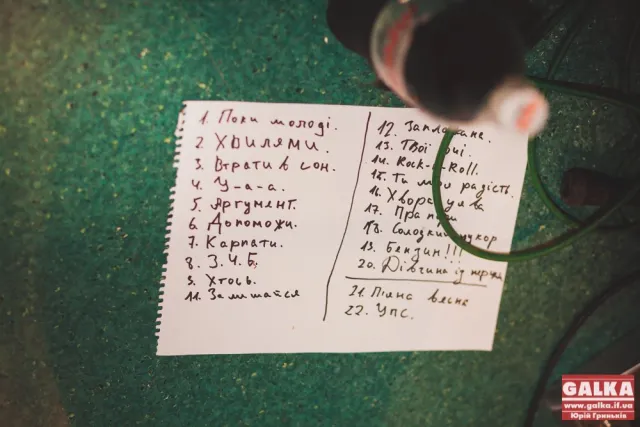 1. Поки молоді.
2. Хвилями.
3. Втратив сон.
4. У-а-а.
5. Аргумент.
6. Допоможи.
7. Карпати.
8. З.Ч.Б.
9. Хтось.
11. Залишайся
12.
13. Твої
14. Rock-n-Roll.
15. Ти моя радість.
16. Хвора
17.
18. Солодкий цукор
19. Бензин!!!
20. Дівчина із
21. П'яна весна
22. Упс.
GALKA
www.galka.if.ua
Юрій Гриньків